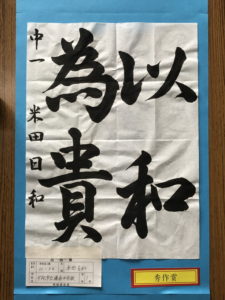 以和
為貴
中一 米田日和
秀作賞